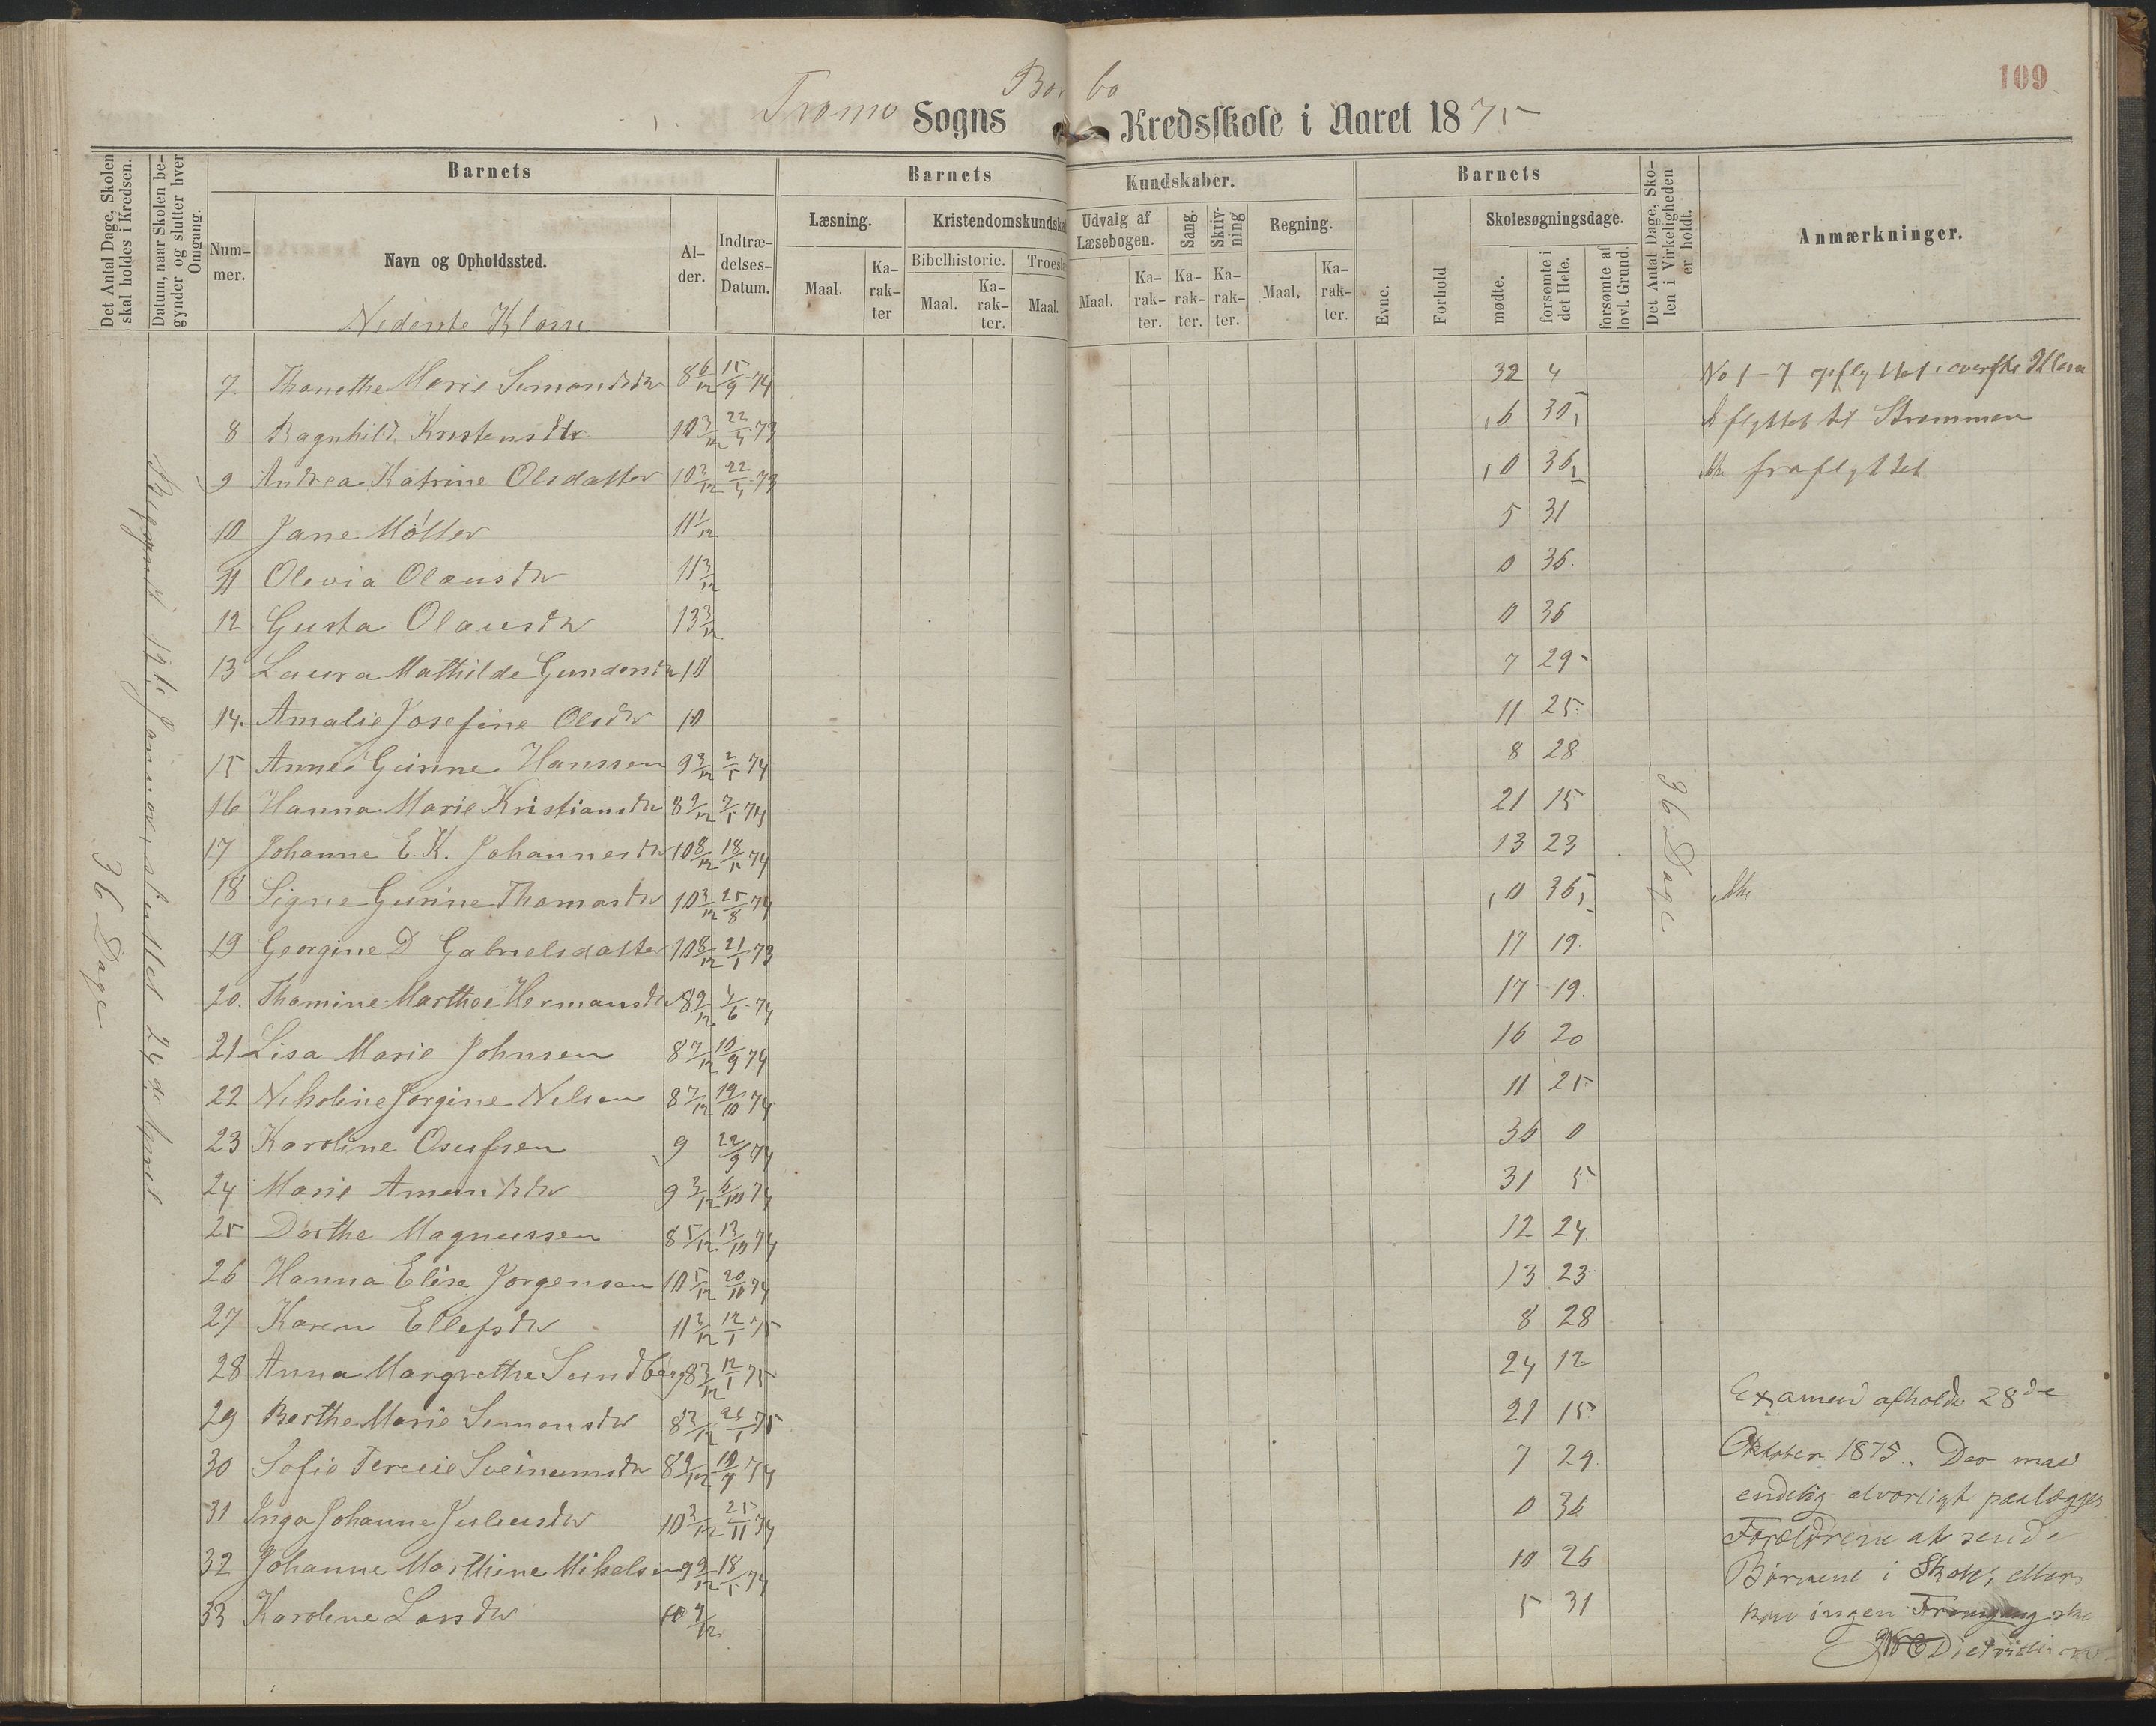 109
Tromø Sogns Borbo Kredsskole i Aaret 1875
Det Antal Dage, Skolen skal holdes i Kredsen.
Datum, naar Skolen begynder og slutter hver Omgang.
Barnets
Barnets Kundskaber.
Barnets
Det Antal Dage, Skolen i Virkeligheden er holdt.
Anmærkninger.
Nummer.
Navn og Opholdssted.
Alder.
Indtrædelses-Datum.
Læsning.
Kristendomskundska
Udvalg af Læsebogen.
Sang.
Skrivning
Regning.
Evne.
Forhold
Skolesøgningsdage.
Bibelhistorie.
Troesl
Maal. Karakter Maal. Karakter. Maal.
Maal. Karakter. Karakter. Karakter. Maal. Karakter.
mødte.
forsømte i det Hele.
forsømte af lovl. Grund.
Nederste Klasse
7. Thonethe Marie Simonsdtr 8 6/12 15/9 74 32 4 No 1-7 opflyttet i øverste Klasse
8 Ragnhild Kristensdtr 10 3/12 22/4 73 6 30 flyttet til Strømmen
9 Andrea Katrine Olsdatter 10 2/12 22/4 73 0 36 fraflyttet
10 Jane Möller 11 1/12 5 31
11 Olevia Olausdtr 11 3/12 0 36.
12 Gusta Olausdtr 13 3/12 0 36
13 Laura Mathilde Gundersdtr 10 7 29
14. Amalie Josefine Olsdtr 10 11 25
15 Anne Gunine Hanssen 9 3/12 2/5 74 8 28
16 Hanna Marie Kristiansdtr 8 9/12 7/5 74 21 15
17 Johanne E. K. Johannesdtr 10 8/12 18/5 74 13 23
18 Signe Gunine Thomasdtr 10 3/12 25/8 74 0 36
19 Georgine D Gabrielsdatter 10 8/12 21/1 73 17 19.
20. Thomine Marthee Hermansdtr 8 9/12 4/6 74 17 19.
21 Lisa Marie Johnsen 8 7/12 10/9 74 16 20
22 Nikoline Jörgine Nelsen 8 7/12 19/10 74 11 25
23 Karoline Osufsen 9 22/9 74 36 0
24 Marie Amundsdtr 9 3/12 6/10 74 31 5
25 Dorthe Magnussen 8 5/12 13/10 74 12 24.
26 Hanna Elisa Jorgensen 10 5/12 20/10 74 13 23
27 Karen Ellefsdtr 11 2/12 12/1 75 8 28
28 Anna Margrethe Sundberg 8 3/12 12/1 75 24 12
29 Berthe Marie Simonsdtr 8 3/12 26/1 75 21 15
30 Sofie Terecie Sveinumsdtr 8 9/12 10/9 74 7 29
31 Inga Johanne Juleusdtr 10 3/12 25/11 74 0 36
32 Johanne Marthine Mikelsen 9 9/12 18/5 74 10 26
33 Karolene Larsdtr 10 9/12 5 31
36 Dage
Begyndt 19te Januar, sluttet 24de April
36 Dage
Examen afholdt 28de
Oktober 1875. Der maa
endelig alvorligt paalægges
Forældrene at sende
Börnene i Skole, ellers
kan ingen Fremgang ske
Dietrichson